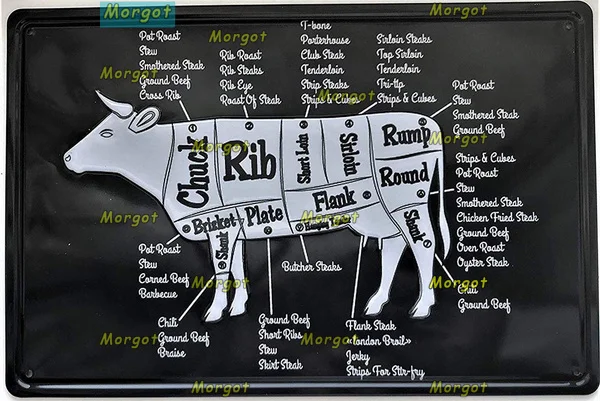 Morgot
Morgot
Morgot
Pot Roast
Stew
Smothered Steak
Ground Beef
Cross Rib
Rib Roast
Rib Steaks
Rib Eye
Roast Of Steak
T-bone
Porterhouse
Club Steak
Tenderloin
Strip Steaks
Strips & Cubes
Sirloin Steaks
Top Sirloin
Tenderloin
Tri-tip
Strips & Cubes
Pot Roast
Stew
Smothered Steak
Ground Beef
Morgot
Morgot
Morgot
Morgot
Morgot
Chuck
Rib
Short Loin
Sirloin
Rump
Round
Strips & Cubes
Pot Roast
Stew
Smothered Steak
Chicken Fried Steak
Ground Beef
Oven Roast
Oyster Steak
Morgot
Morgot
Morgot
Brisket
Plate
Flank
Shank
Shank
Morgot
Morgot
Pot Roast
Stew
Corned Beef
Barbecue
Butcher Steaks
Chili
Ground Beef
Morgot
Morgot
Morgot
Chili
Ground Beef
Braise
Ground Beef
Short Ribs
Stew
Skirt Steak
Flank Steak
«london Broil»
Jerky
Strips For Stir-fry
Morgot
Morgot
Morgot
Morgot
Morgot